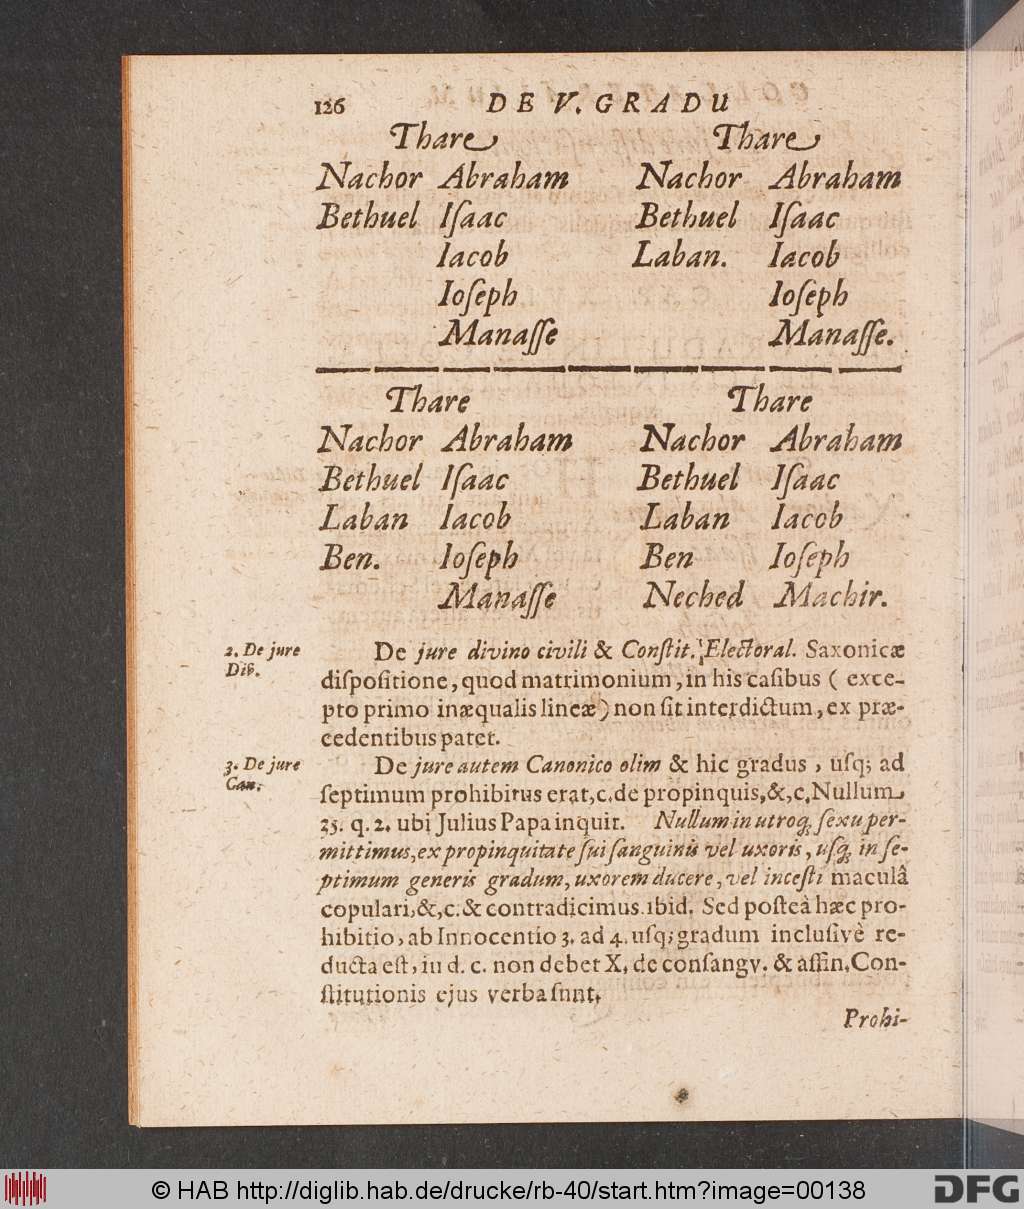 126 DE V. GRADU
Thare Thare
Nachor Abraham Nachor Abraham
Bethuel Iſaac Bethuel Iſaac
Iacob Laban. Iacob
Ioſeph Ioſeph
Manaſſe Manaſſe.
Thare Thare
Nachor Abraham Nachor Abraham
Bethuel Iſaac Bethuel Iſaac
Laban Iacob Laban Iacob
Ben. Ioſeph Ben Ioſeph
Manaſſe Neched Machir.
2. De jure
Div.
De jure divino civili & Conſtit. Electoral. Saxonicæ
diſpoſitione, quod matrimonium, in his caſibus ( exce-
pto primo inæqualis lineæ) non ſit interdictum, ex præ-
cedentibus patet.
3. De jure
Can.
De jure autem Canonico olim & hic gradus, uſq; ad
ſeptimum prohibitus erat, c. de propinquis, &, c. Nullum
35. q. 2. ubi Julius Papa inquit. Nullum in utroq; ſexu per-
mittimus, ex propinquitate ſui ſanguinis vel uxoris, uſq; in ſe-
ptimum generis gradum, uxorem ducere, vel inceſti maculâ
copulari, &, c. & contradicimus. ibid. Sed poſteà hæc pro-
hibitio, ab Innocentio 3. ad 4. uſq; gradum incluſivè re-
ducta eſt, iu d. c. non debet X. de conſangv. & affin. Con-
ſtitutionis ejus verba ſunt.
Prohi-
© HAB http://diglib.hab.de/drucke/rb-40/start.htm?image=00138
DFG